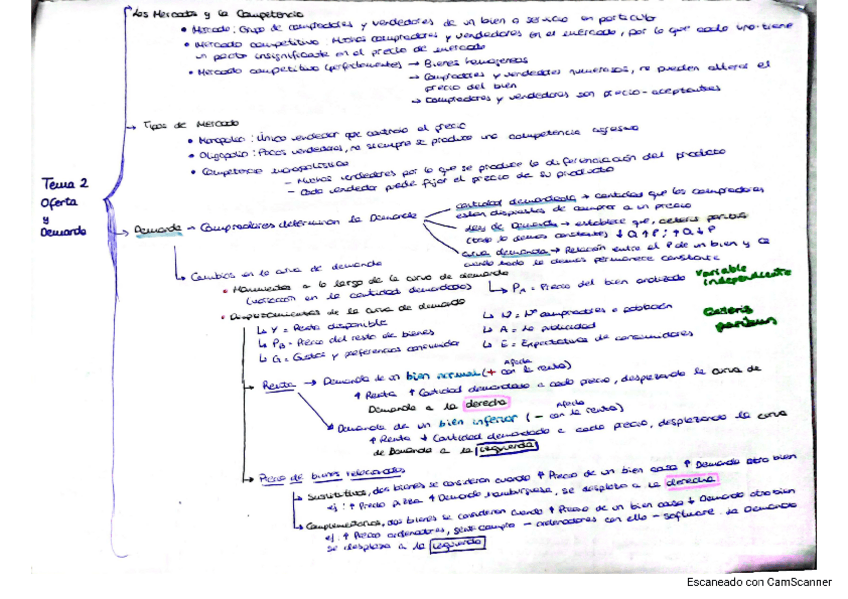 Los Mercados y la Competencia
• Mercado: Grupo de compradores y vendedores de un bien o servicio en particular
• Mercado competitivo: Muchos compradores y vendedores en el mercado, por lo que cada uno tiene
un poder insignificante en el precio de mercado
• Mercado competitivo (perfectamente) → Bienes homogéneos
→ Compradores y vendedores numerosos, no pueden alterar el
precio del bien
→ Compradores y vendedores son precio-aceptantes
Tipos de Mercado
• Monopolio: Único vendedor que controla el precio
• Oligopolio: Pocos vendedores, no siempre se produce una competencia agresiva
• Competencia monopolística
- Muchos vendedores por lo que se produce la diferenciación del producto
- Cada vendedor puede fijar el precio de su producto
Tema 2
Oferta
y
Demanda
Demanda → Compradores determinan la Demanda
cantidad demandada → cantidad que los compradores
están dispuestos de comprar a un precio
Ley de Demanda → establece que, ceteris paribus
(todo lo demás constante) ↓Q ↑P ; ↑Q ↓P
curva demanda → Relación entre el P de un bien y Q
cuando todo lo demás permanece constante
Cambios en la curva de demanda
• Movimientos a lo largo de la curva de demanda
(variación en la cantidad demandada)
PA = Precio del bien analizado
variable
independiente
• Desplazamientos de la curva de demanda
Y = Renta disponible
PB = Precio del resto de bienes
G = Gustos y preferencias consumidor
N = Nº compradores o población
A = La publicidad
E = Expectativas de consumidores
Ceteris
paribus
Renta → Demanda de un bien normal (+ Afecta con la renta)
↑ Renta ↑ Cantidad demandada a cada precio, desplazando la curva de
Demanda a la derecha
Demanda de un bien inferior (- Afecta con la renta)
↑ Renta ↓ Cantidad demandada a cada precio, desplazando la curva
de Demanda a la izquierda
Precio de bienes relacionados
Sustitutivos, dos bienes se consideran cuando ↑ Precio de un bien causa ↑ Demanda otro bien
ej: ↑ Precio pizza ↑ Demanda hamburguesa, se desplaza a la derecha
Complementarios, dos bienes se consideran cuando ↑ Precio de un bien causa ↓ Demanda otro bien
ej: ↑ Precio ordenadores, gente compra - ordenadores con ello - software. La Demanda
se desplaza a la izquierda
Escaneado con CamScanner